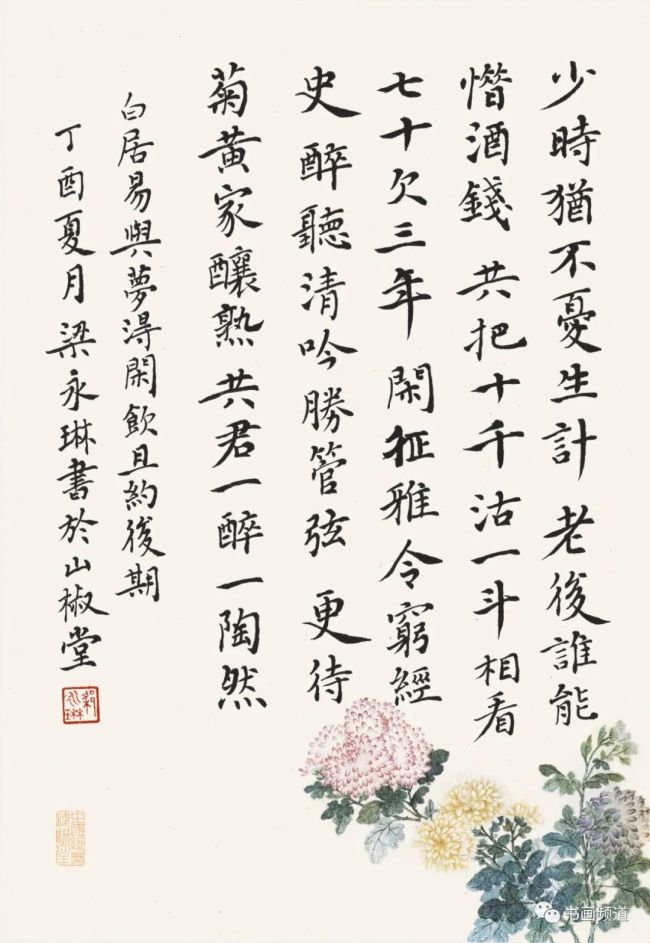 少時猶不憂生計 老後誰能
惜酒錢 共把十千沽一斗 相看
七十欠三年 閑征雅令窮經
史 醉聽清吟勝管弦 更待
菊黃家釀熟 共君一醉一陶然
白居易與夢得閑飲且約後期
丁酉夏月梁永琳書於山椒堂
书画频道